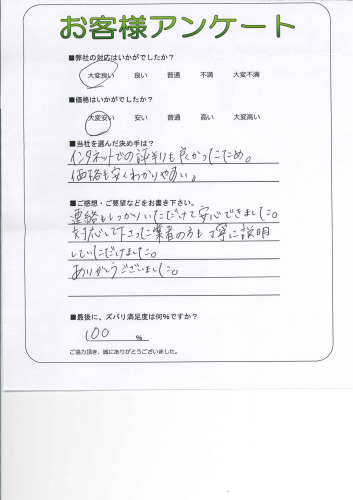 お客様アンケート
■弊社の対応はいかがでしたか?
大変良い 良い 普通 不満 大変不満
■価格はいかがでしたか?
大変安い 安い 普通 高い 大変高い
■当社を選んだ決め手は?
インタネットでの評判も良かったため。
価格も安くわかりやすい。
■ご感想・ご要望などをお書き下さい。
連絡もしっかりいただけて安心できました。
対応して下さった業者の方も丁寧に説明
していただけました。
ありがとうございました。
■最後に、ズバリ満足度は何%ですか?
100 %
ご協力頂き、誠にありがとうございました。